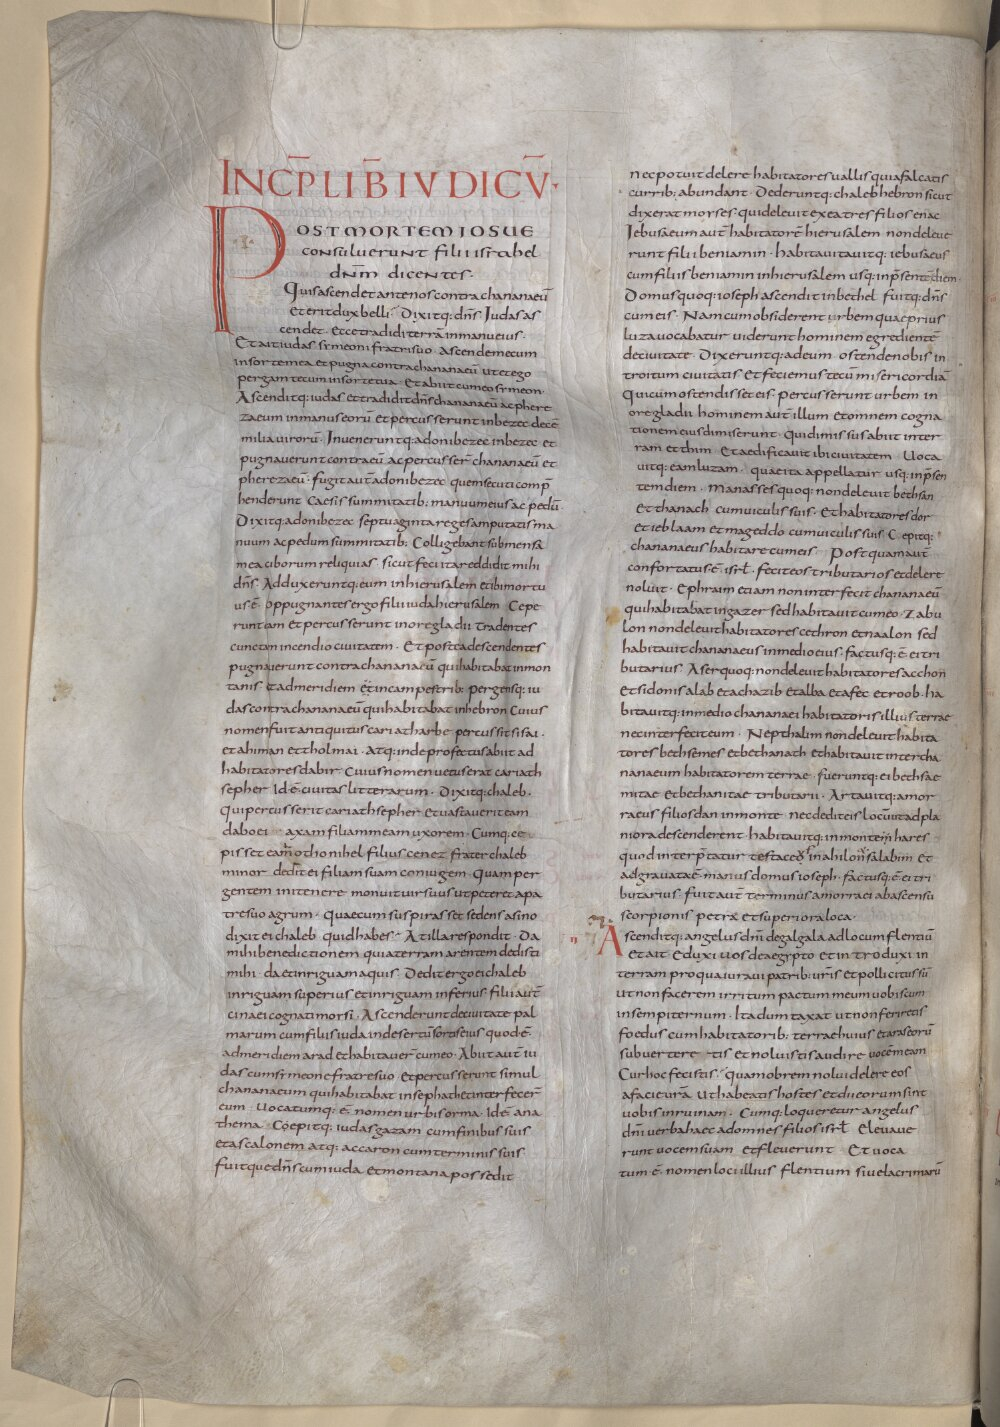 INCP̄ LIB̄ IVDICŪ·
POST MORTEM IOSUE
consuluerunt filii israhel
dn̄m dicentes·
Quis ascendet ante nos contra chananaeū
et erit dux belli· Dixitq; dn̄s Iudas as
cendet· Ecce tradidi terrā in manu eius·
Et ait iudas symeoni fratri suo· Ascende mecum
in sorte mea et pugna contra chananaeū ut et ego
pergam tecum in sorte tua· Et abiit cum eo symeon·
Ascenditq; iudas et tradidit dn̄s chananaeū ac phere
zaeum in manus eorū et percusserunt in bezec decē
milia virorū· Inveneruntq; adonibezec in bezec et
pugnaverunt contra eū ac percusser̄ chananaeū et
pherezaeū· fugit aut̄ adonibezec quem secuti comp̄
henderunt caesis summitatib; manuum eius ac pedū·
Dixitq; adonibezec septuaginta reges amputatis ma
nuum ac pedum summitatib; Colligebant sub mensa
mea ciborum reliquias· sicut feci ita reddidit mihi
dn̄s· Adduxeruntq; eum in hierusalem et ibi mortu
us ē· oppugnantes ergo filii iuda hierusalem cepe
runt eam et percusserunt in ore gladii tradentes
cunctam incendio civitatem· Et postea descendentes
pugnaverunt contra chananaeū qui habitabat in mon
tanis et ad meridiem et in campestrib; pergensq; iu
das contra chananaeū qui habitabat in hebron Cuius
nomen fuit antiquitus cariatharbe· percussit sisai·
et ahiman et tholmai· Atq; inde profectus abiit ad
habitatores dabir Cuius nomen vetus erat cariath
sepher Id ē civitas litterarum· Dixitq; chaleb·
Qui percusserit cariathsepher et vastaverit eam
dabo ei axam filiam meam uxorem· Cumq; ce
pisset eam othonihel filius cenez frater chaleb
minor dedit ei filiam suam coniugem· Quam per
gentem in itenere monuit vir suus ut peteret a pa
tre suo agrum· Quae cum suspirasset sedens asino
dixit ei chaleb quid habes· At illa respondit· Da
mihi benedictionem quia terram arentem dedisti
mihi· da et inriguam aquis· Dedit ergo ei chaleb
inriguam superius et inriguam inferius· filii aut̄
cinaei cognati morsi· Ascenderunt de civitate pal
marum cum filiis iuda in desertū sortis eius quod ē
ad meridiem arad et habitaver̄ cum eo· Abiit aut̄ iu
das cum symeone fratre suo et percusserunt simul
chananaeum qui habitabat in sephath et interfecer̄
eum· Vocatumq; ē nomen urbis orma· Id ē ana
thema· Coepitq; iudas gazam cum finibus suis
et ascalonem atq; accaron cum terminis suis
fuitque dn̄s cum iuda et montana possedit
nec potuit delere habitatores vallis quia falcatis
currib; abundant· Dederuntq; chaleb hebron sicut
dixerat moyses qui delevit ex ea tres filios enac
Iebusaeum aut̄ habitatorē hierusalem non deleve
runt filii beniamin· habitavitavitq; iebusaeus
cum filiis beniamin in hierusalem usq; in p̄sente diem·
Domus quoq; ioseph ascendit in bethel fuitq; dn̄s
cum eis· Nam cum obsiderent urbem quae prius
luza vocabatur viderunt hominem egredientē
de civitate· Dixeruntq; ad eum ostende nobis in
troitum civitatis et faciemus tecū misericordiā
Qui cum ostendisset eis· percusserunt urbem in
ore gladii hominem aut̄ illum et omnem cogna
tionem eius dimiserunt· Qui dimissus abiit in ter
ram etthim· Et aedificavit ibi civitatem Voca
vitq; eam luzam· quae ita appellatur usq; in p̄sen
tem diem· Manasses quoq; non delevit bethsan
et thanach cum viculis suis· Et habitatores dor
et ieblaam et mageddo cum viculis suis· Cepitq;
chananaeus habitare cum eis Postquam aut̄
confortatus ē isrł· fecit eos tributarios et delere
noluit· Ephraim etiam non interfecit chananaeū
qui habitabat in gazer sed habitavit cum eo· Zabu
lon non delevit habitatores cethron et naalon sed
habitavit chananaeus in medio eius· factusq; ē ei tri
butarius· Aser quoq; non delevit habitatores acchon
et sidonis alab et achazib et alba et afec et roob· ha
bitavitq; in medio chananaei habitatoris illius terrae
nec interfecit eum· Nepthalim non delevit habita
tores bethsemes et bethanach et habitavit inter cha
nanaeum habitatorem terrae· fueruntq; ei bethsae
mitae et bethanitae tributarii· Artavitq; amor
raeus filios dan in monte nec dedit eis locū ut ad pla
niora descenderent· habitavitq; in monte hares
quod interp̄tatur testaceo in ahilon salabim et
adgravata ē manus domus ioseph· factusq; ē ei tri
butarius· fuit aut̄ terminus amorraei ab ascensu
scorpionis petra et superiora loca·
Ascenditq; angelus dn̄i de galgala ad locum flentiū
et ait Eduxi vos de aegypto et introduxi in
terram pro qua iuravi patrib; vr̄is et pollicitus sū
ut non facerem irritum pactum meum vobiscum
in sempiternum· Ita dumtaxat ut non feriretis
foedus cum habitatorib; terrae huius et aras eorū
subvertere tis et noluistis audire vocem meam
Cur hoc fecistis· quam obrem nolui delere eos
a facie vr̄a Ut habeatis hostes et dii eorum sint
vobis in ruinam· Cumq; loqueretur angelus
dn̄i verba haec ad omnes filios isrł Elevave
runt vocem suam et fleverunt Et voca
tum ē nomen loci illius flentium sive lacrimarū